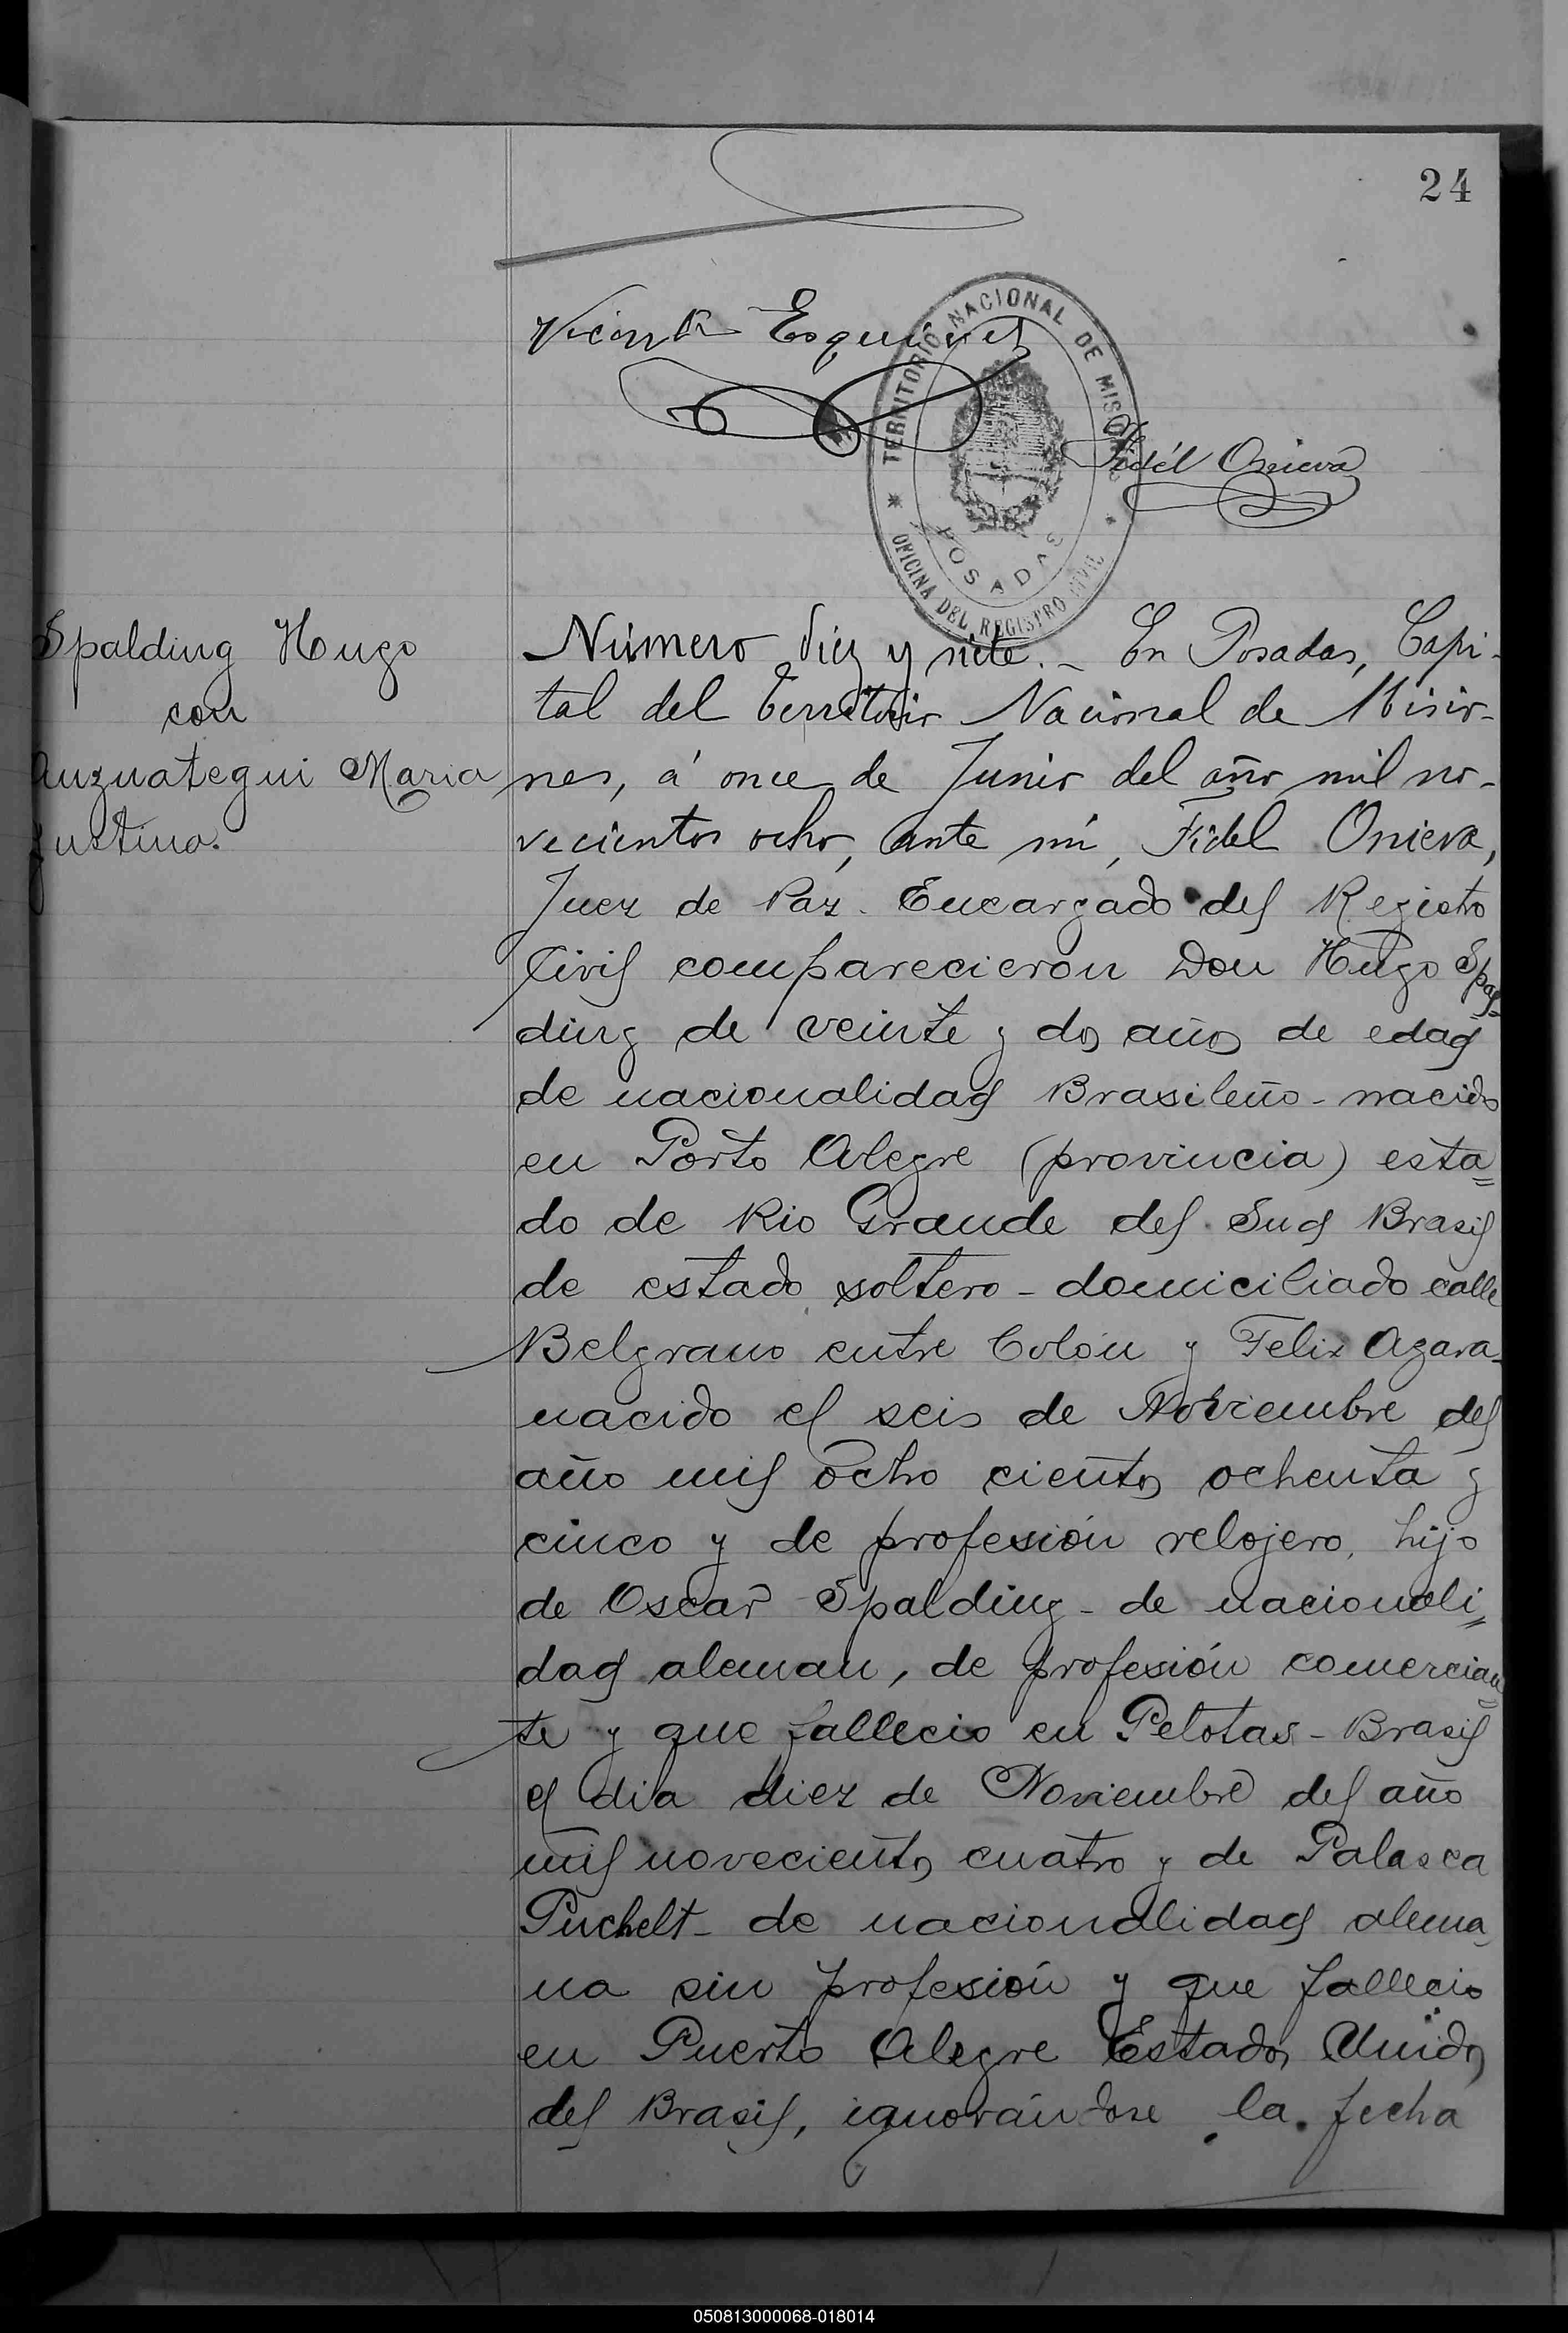 24
Vicente Esquivel
TERRITORIO NACIONAL DE MISIONES
POSADAS
OFICINA DEL REGISTRO CIVIL
Fidél Onieva
Spalding Hugo
con
Auzuategui Maria
Justina.
Número diez y siete. - En Posadas, Capi-
tal del Territorio Nacional de Misio-
nes, á once de Junio del año mil no-
vecientos ocho, ante mi, Fidel Onieva,
Juez de Paz. Encargado del Registro
Civil comparecieron Don Hugo Spal-
ding de veinte y dos años de edad
de nacionalidad Brasileño - nacido
en Porto Alegre (provincia) esta=
do de Rio Grande del Sud Brasil
de estado soltero - domiciliado calle
Belgrano entre Colón y Felix Azara-
nacido el seis de Noviembre del
año mil ocho cientos ochenta y
cinco y de profesión relojero, hijo
de Oscar Spalding - de nacionali=
dad aleman, de profesión comercian=
te y que fallecio en Pelotas - Brasil
el dia diez de Noviembre del año
mil novecientos cuatro y de Palasca
Puchelt - de nacionalidad alema
na sin profesión y que fallecio
en Puerto Alegre Estados Unidos
del Brasil, ignorándose la fecha
050813000068-018014